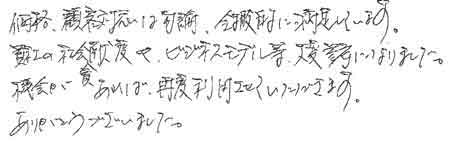 価格、顧客対応は勿論、全般的に満足しています。
貴社の社会貢献度や、ビジネスモデル等、大変参考になりました。
機会があれば、再度利用させていただきます。
ありがとうございました。